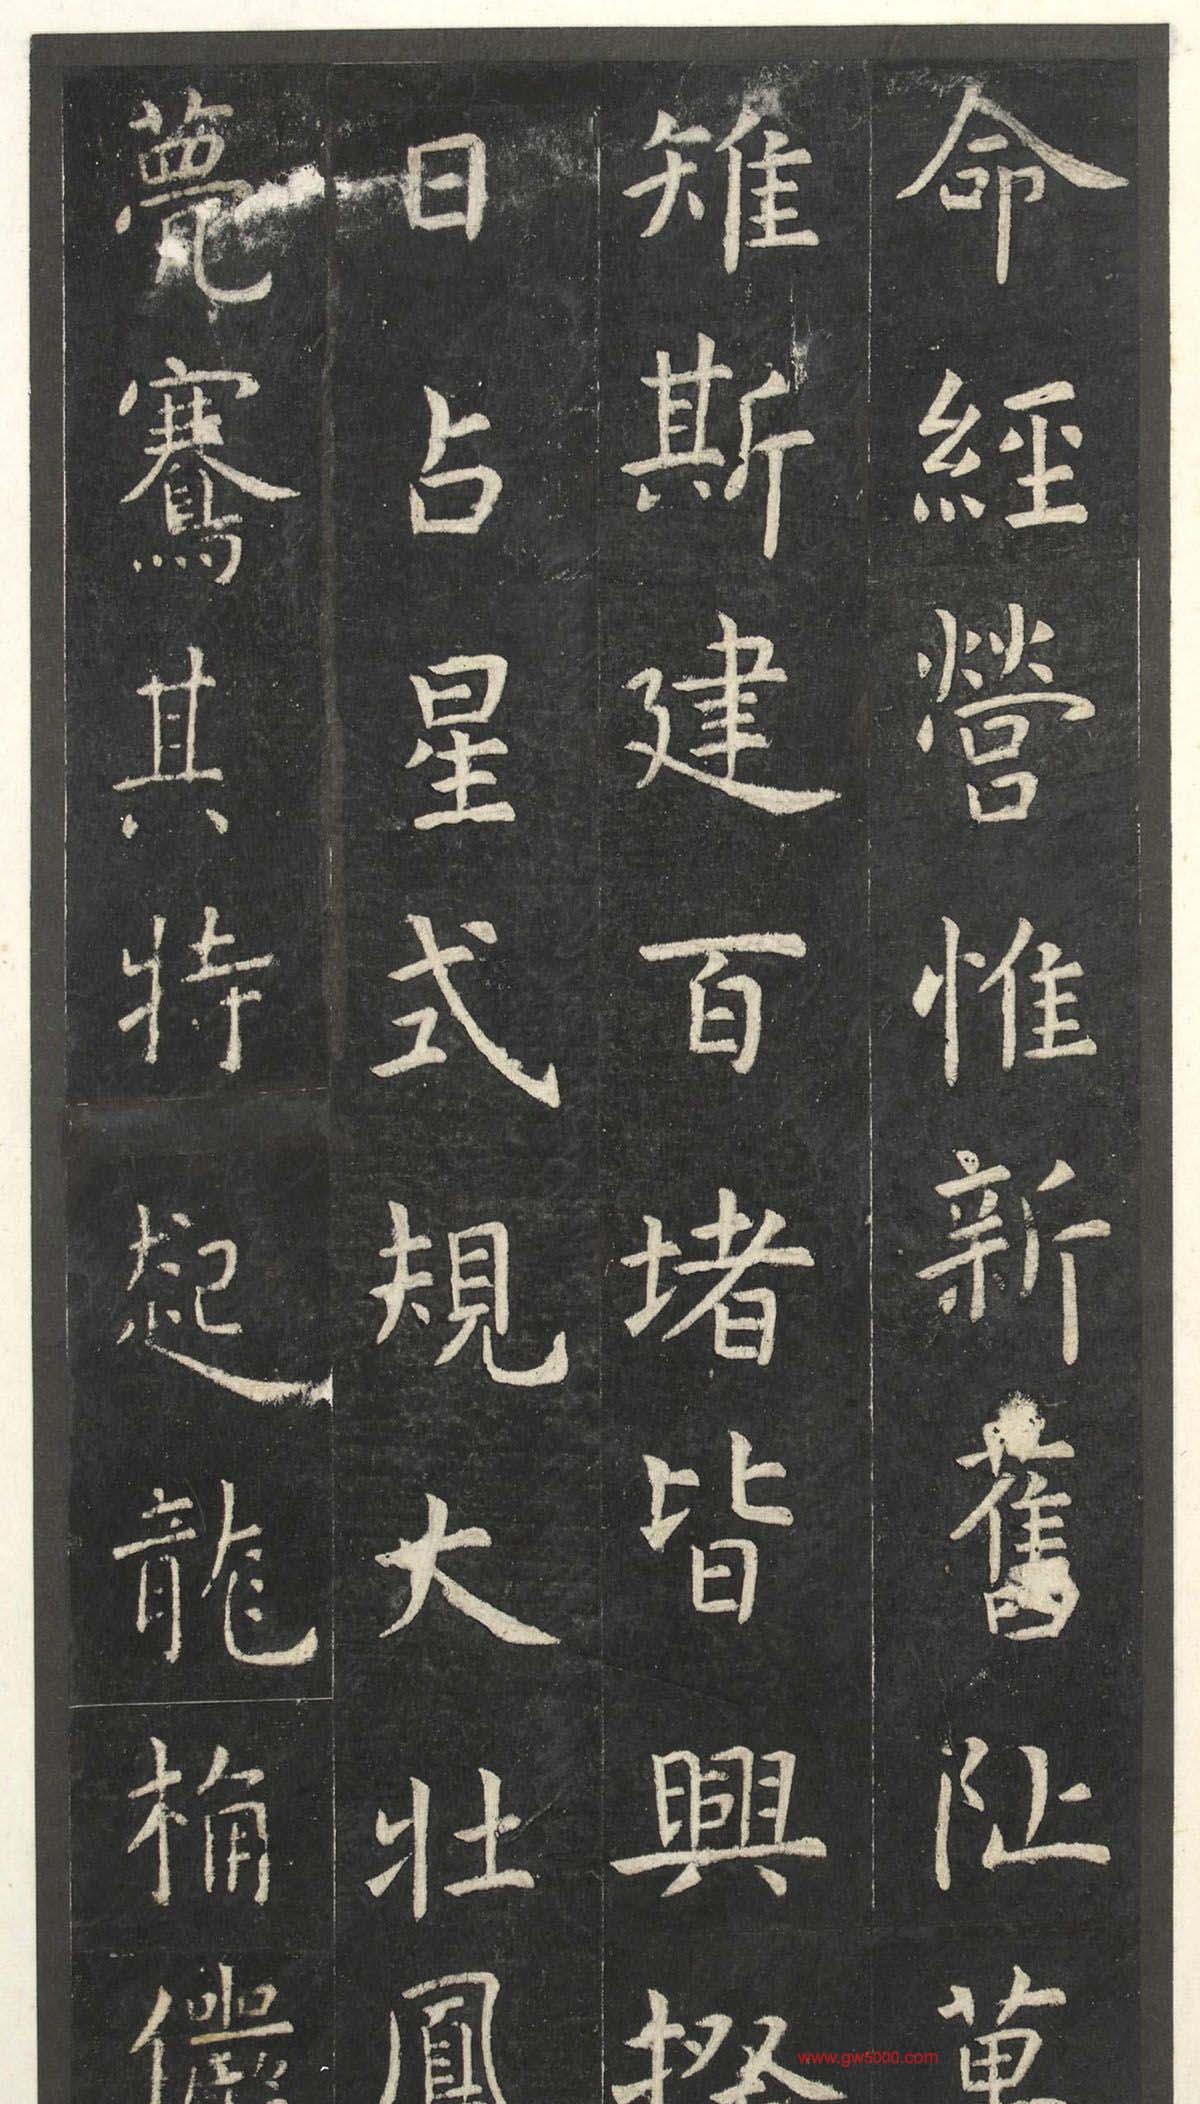 命經營惟新舊阯萬
雉斯建百堵皆興揆
日占星式規大壯鳳
甍騫其特起龍桷儼
www.gw5000.com